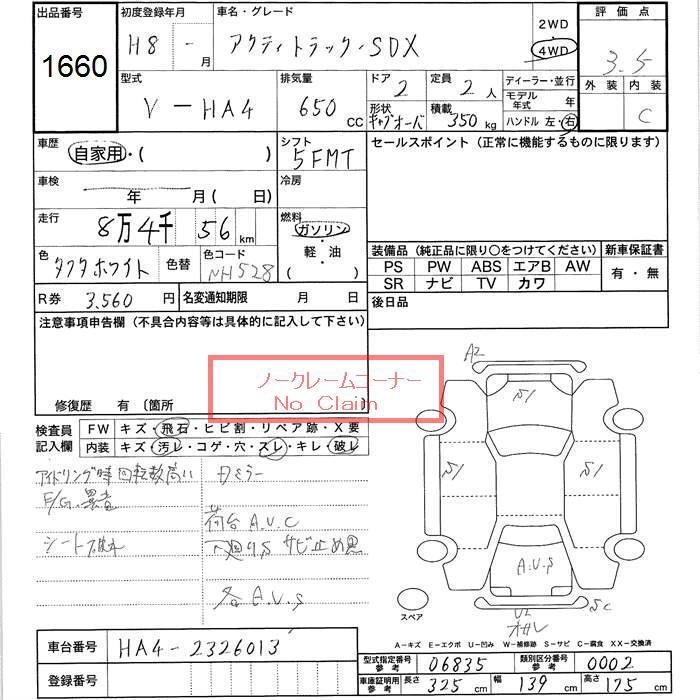 出品番号 初度登録年月 車名・グレード 評価点
1660 H8 - 月 アクティトラック・SDX 2WD 4WD 3.5
型式 排気量 ドア 定員 ディーラー・並行 外装 内装
V-HA4 650 CC 2 2 人 モデル年式 年 C
形状 積載 ハンドル 左・右
キャブオーバ 350 kg
車歴 自家用・( ) シフト 5FMT セールスポイント(正常に機能するものに限ります)
車検 年 月( 日) 冷房
走行 8万4千 56 km 燃料 ガソリン・軽・油 ( )
色 タフタホワイト 色替 色コード NH528
装備品(純正品に限り○をつけてください) 新車保証書
PS PW ABS エアB AW 有・無
SR ナビ TV カワ
R券 3.560 円 名変通知期限 月 日 後日品
注意事項申告欄(不具合内容等は具体的に記入して下さい)
ノークレームコーナー
No Claim
修復歴 有〔箇所
A2
S1
S1 S1
A.U.S
U2 SC
スペア
検査員記入欄 FW キズ・飛石・ヒビ割・リペア跡・X要
内装 キズ・汚レ・コゲ・穴・スレ・キレ・破レ
アイドリング時回転数高い
E/G.異音
シート破れ
荷台A.U.C
下廻りS サビ止め黒
各A.U.S
A-キズ E-エクボ U-凹み W-補修跡 S-サビ C-腐食 XX-交換済
車台番号 HA4-2326013
登録番号
型式指定番号 参考 06835 類別区分番号 参考 0002
車庫証明用 参考 長さ 325 cm 幅 139 cm 高さ 175 cm